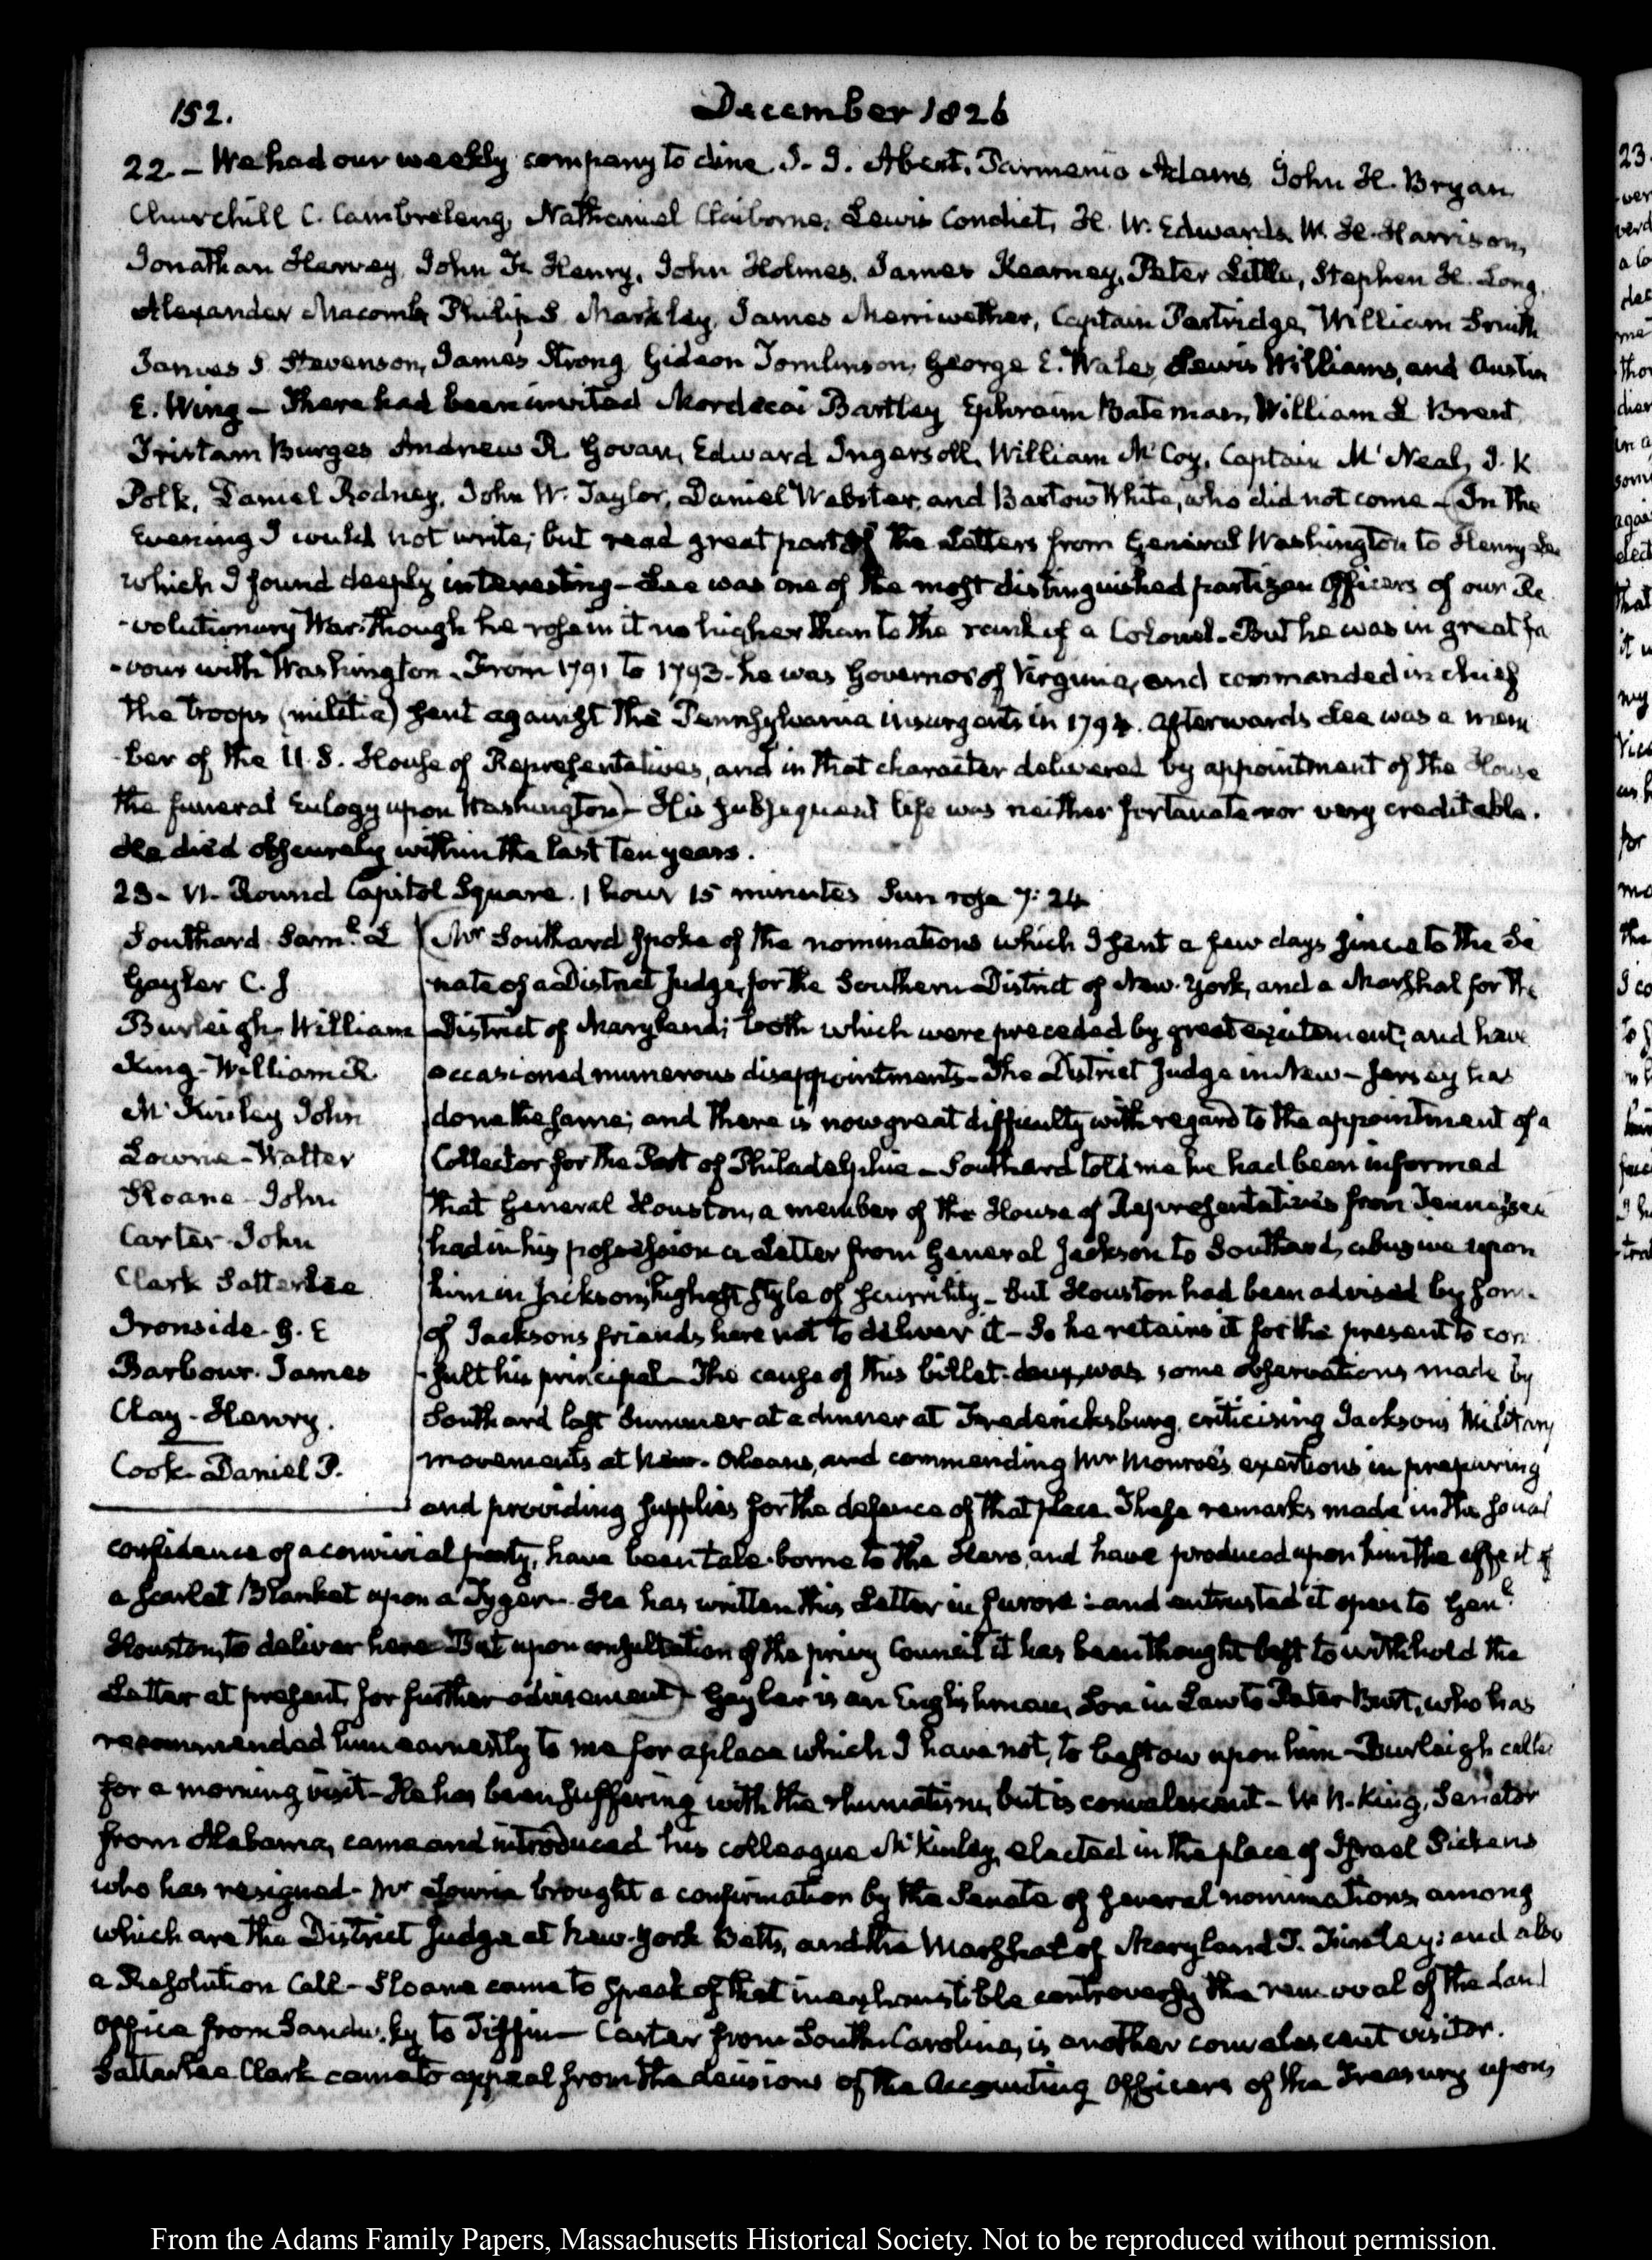 152. December 1826
22. - We had our weekly company to dine. J. J. Abert, Parmenio Adams, John H. Bryan
Churchill C. Cambreleng, Nathaniel Claiborne, Lewis Condict, H. W. Edwards, W. H. Harrison,
Jonathan Harvey, John F. Henry, John Holmes, James Kearney, Peter Little, Stephen H. Long,
Alexander Macomb, Philip S. Markley, James Merriwether, Captain Partridge, William Smith
James S. Stevenson, James Strong, Gideon Tomlinson, George E. Wales, Lewis Williams, and Austin
E. Wing - There had been invited Mordecai Bartley, Ephraim Bateman, William L Brent,
Tristam Burges Andrew R. Govan, Edward Ingersoll, William McCoy, Captain McNeal, J. K
Polk, Daniel Rodney, John W. Taylor, Daniel Webster, and Bartow White, who did not come - (In the
Evening I could not write; but read great part of the Letters from General Washington to Henry Lee
which I found deeply interesting - Lee was one of the most distinguished partizan Officers of our Re
-volutionary War. though he rose in it no higher than to the rank of a Colonel. But he was in great fa
-vour with Washington. From 1791 to 1793. he was Governor of Virginia, and commanded in chief
the troops (militia) sent against the Pennsylvania insurgents in 1794. afterwards Lee was a mem
-ber of the U. S. House of Representatives, and in that character delivered by appointment of the House
the funeral Eulogy upon Washington) - His subsequent life was neither fortunate nor very creditable.
He died obscurely within the last ten years.
23 - VI. Round Capitol Square. 1 hour 15 minutes Sun rose 7: 24
Southard Saml. L
Gayler C. J
Burleigh William
King - William R
McKinley John
Lowrie - Walter
Sloane - John
Carter John
Clark Satterlee
Ironside. G. E
Barbour. James
Clay - Henry.
Cook Daniel P.
(Mr Southard spoke of the nominations which I sent a few days since to the Se
nate of a District Judge, for the Southern District of New-York, and a Marshal for the
District of Maryland; both which were preceded by great excitement, and have
occasioned numerous disappointments - The District Judge in New-Jersey has
done the same; and there is now great difficulty with regard to the appointment of a
Collector for the Port of Philadelphia - Southard told me he had been informed
that General Houston, a member of the House of Representatives from Tennessee
had in his possession a Letter from General Jackson to Southard, abusive upon
him in Jackson's highest style of scurrility - but Houston had been advised by some
of Jacksons friends here not to deliver it - So he retains it for the present to con
-sult his principal - The cause of this billet-doux, was some observations made by
Southard last Summer at a dinner at Fredericksburg, criticising Jackson's Military
movements at New-Orleans, and commending Mr Monroe's exertions in preparing
and providing supplies for the defence of that place. These remarks made in the social
confidence of a convivial party, have been tale-borne to the Hero, and have produced upon him the effect of
a scarlet Blanket upon a Tyger - He has written this Letter in furore: and entrusted it open to Genl.
Houston, to deliver here. But upon consultation of the privy Council it has been thought best to withhold the
Letter at present, for further advisement) - Gayler is an Englishman, Son in Law to Peter Burt, who has
recommended him earnestly to me for a place which I have not, to bestow upon him - Burleigh called
for a morning visit - He has been suffering with the rhumatism, but is convalescent - W. R. King, Senator
from Alabama, came and introduced his colleague McKinley, elected in the place of Israel Pickens
who has resigned - Mr Lowrie brought a confirmation by the Senate of several nominations, among
which are the District Judge at New-York Betts, and the Marshal of Maryland T. Finley; and also
a Resolution Call - Sloane came to speak of that inexhaustible controversy the removal of the Land
Office from Sandusky to Tiffin - Carter from South-Carolina, is another convalescent visitor.
Satterlee Clark came to appeal from the decisions of the Accounting Officers of the Treasury upon
From the Adams Family Papers, Massachusetts Historical Society. Not to be reproduced without permission.